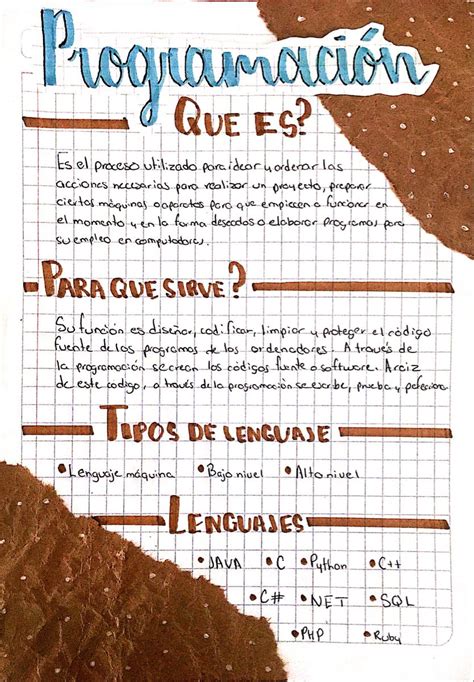 Programación
QUE ES?
Es el proceso utilizado para idear y ordenar las
acciones necesarias para realizar un proyecto, preparar
ciertas máquinas o aparatos para que empiecen a funcionar en
el momento y en la forma deseados o elaborar programas para
su empleo en computadores.
PARA QUE SIRVE?
Su función es diseñar, codificar, limpiar y proteger el código
fuente de los programas de los ordenadores. A través de
la programación se crean los códigos fuente o software. A raiz
de este codigo, a través de la programación se escribe, prueba y perfecciona.
TIPOS DE LENGUAJE
• Lenguaje máquina • Bajo nivel • Alto nivel
LENGUAJES
• JAVA • C • Python • C++
• C# • NET • SQL
• PHP • Ruby